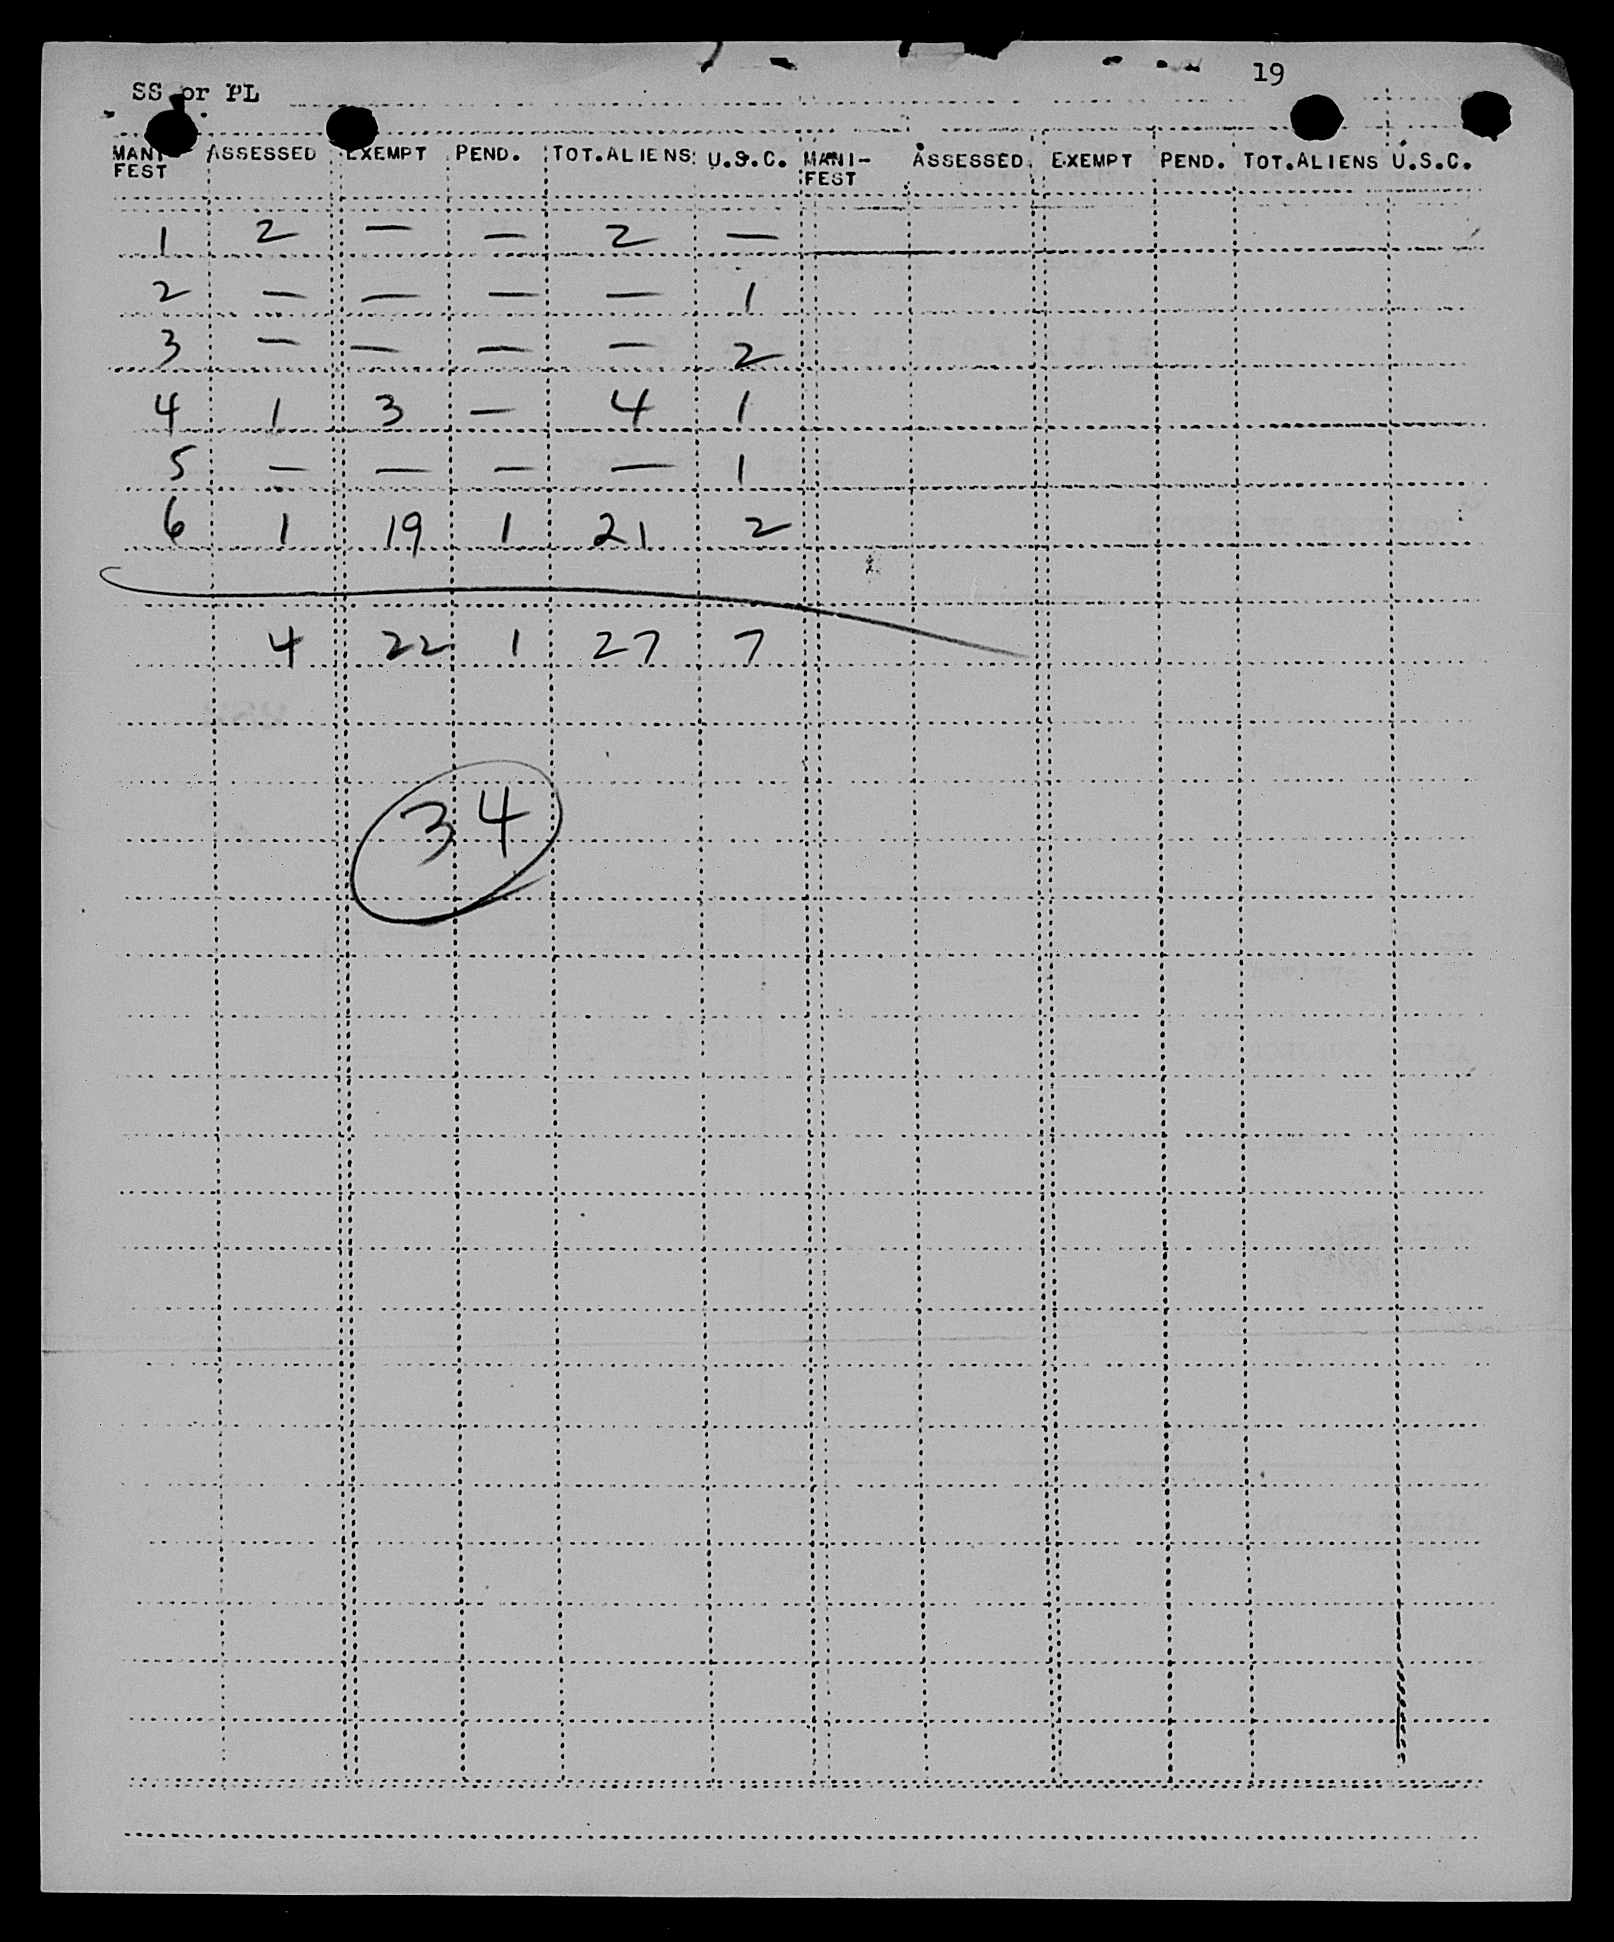 19
SS or PL
MANI- ASSESSED EXEMPT PEND. TOT.ALIENS U.S.C. MANI- ASSESSED EXEMPT PEND. TOT.ALIENS U.S.C.
FEST FEST
1 2 — — 2 —
2 — — — — 1
3 — — — — 2
4 1 3 — 4 1
5 — — — — 1
6 1 19 1 21 2
4 22 1 27 7
34